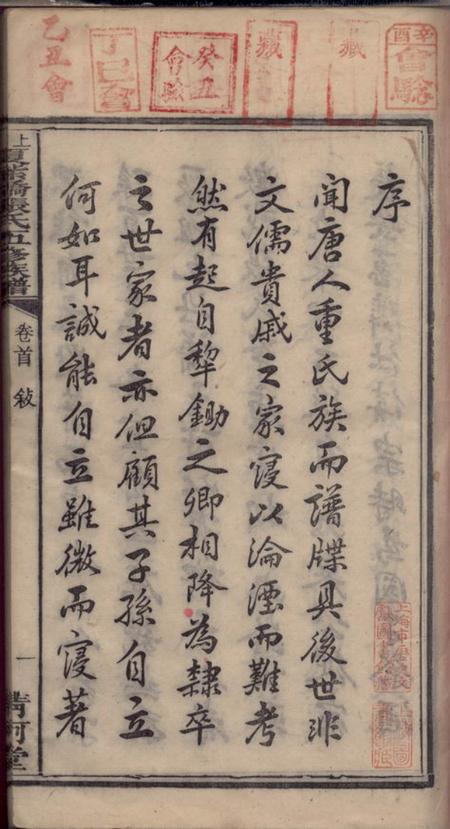 辛酉會驗
藏
藏
癸丑會驗
丁巳
乙丑會
序
聞唐人重氏族而譜牒具後世非
文儒貴戚之家寖以淪湮而難考
然有起自犂鋤之卿相降為隸卒
之世家者亦但顧其子孫自立
何如耳誠能自立雖微而寖著
張氏五修族譜
卷首 敍
一
清河堂